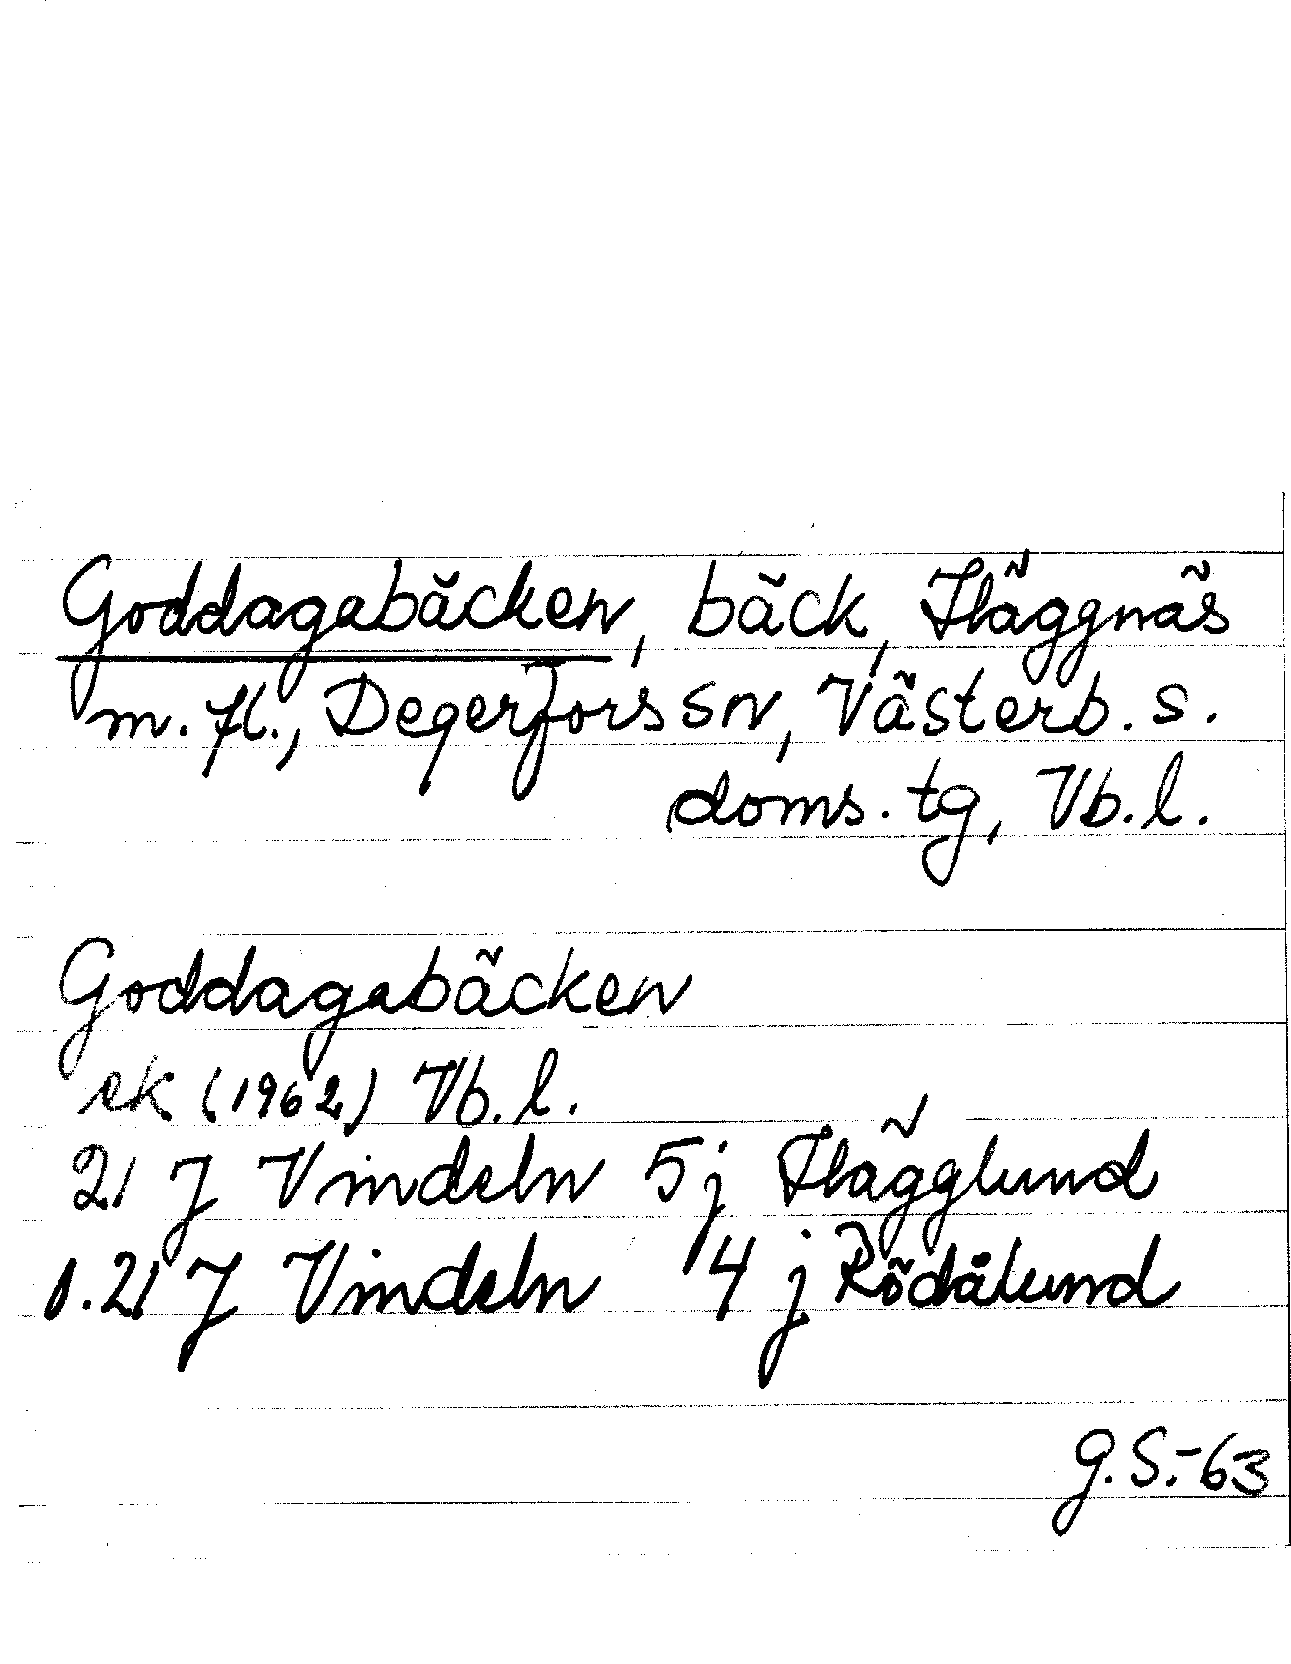 Goddagabäcken, bäck, Häggnäs
m. fl., Degerfors sn, Västerb. s.
doms. tg, Vb. l.
Goddagabäcken
ek (1962) Vb. l.
21 J Vindeln 5 j Hägglund
s. 21 J Vindeln 4 j Rödålund
G. S. -63